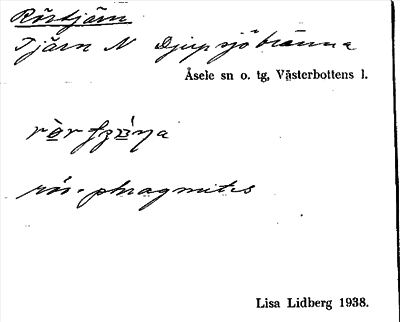 Rörtjärn
Tjärn N Djupsjöbränna
Åsele sn o. tg, Västerbottens l.
rör- phragmites
Lisa Lidberg 1938.